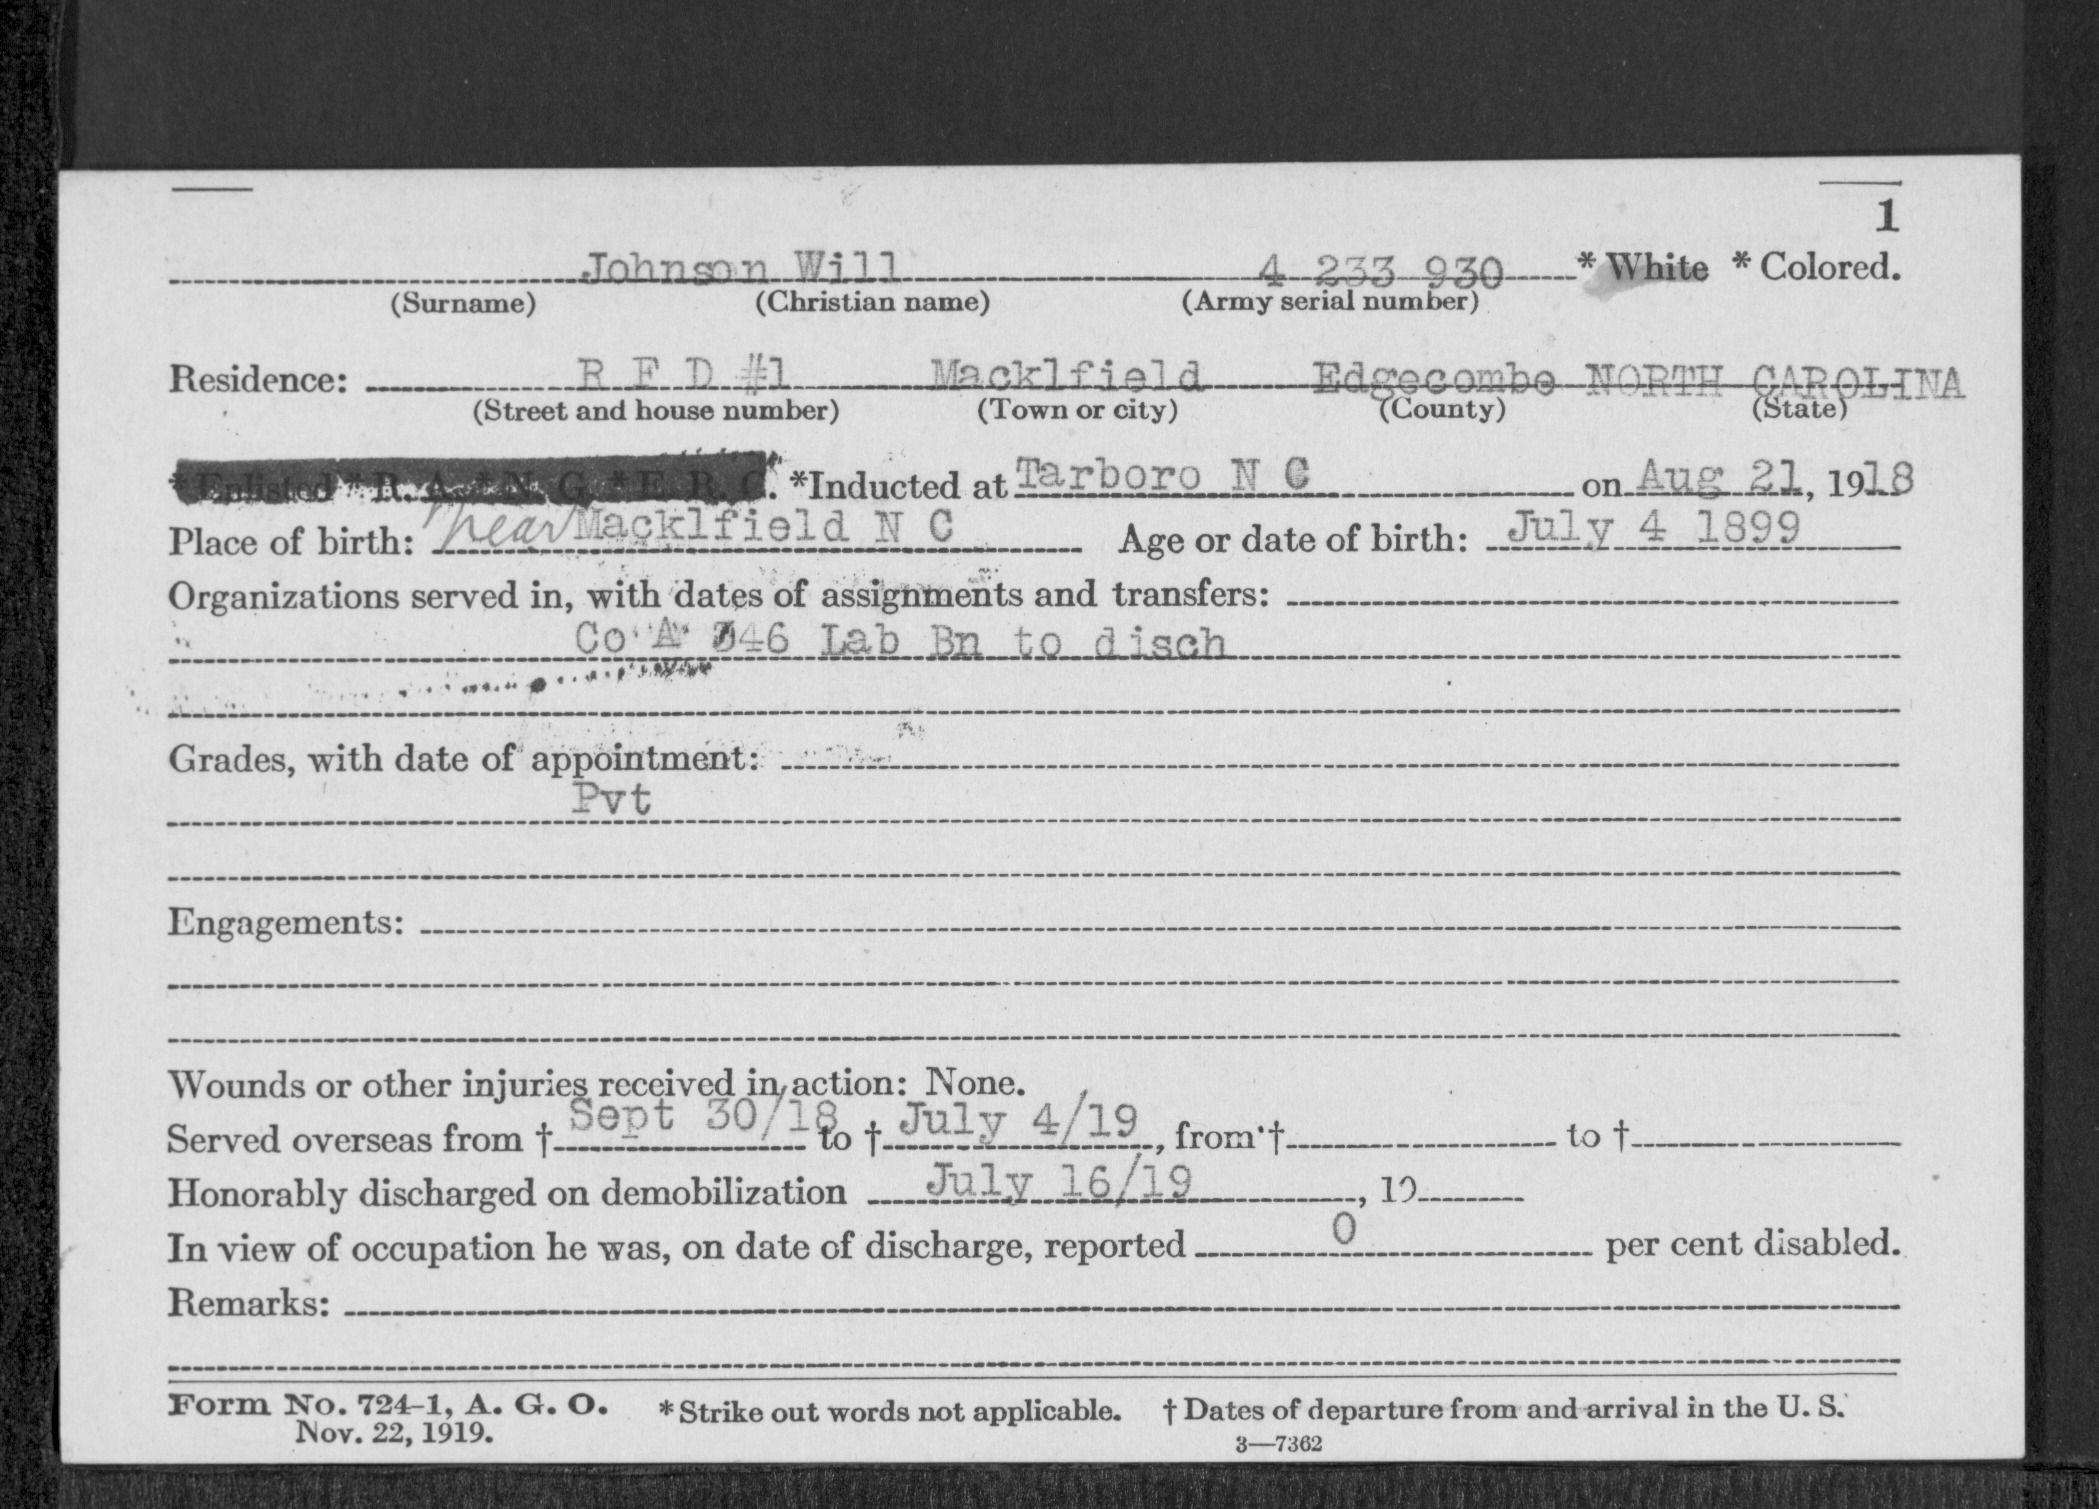 1
Johnson Will 4 233 930 * White * Colored.
(Surname) (Christian name) (Army serial number)
Residence: R F D #1 Macklfield Edgecombe NORTH CAROLINA
(Street and house number) (Town or city) (County) (State)
* Enlisted * R. A. * N. G. * E. R. C. *Inducted at Tarboro N C on Aug 21, 1918
Place of birth: near Macklfield N C Age or date of birth: July 4 1899
Organizations served in, with dates of assignments and transfers:
Co "A" 346 Lab Bn to disch
Grades, with date of appointment:
Pvt
Engagements:
Wounds or other injuries received in action: None.
Served overseas from † Sept 30/18 to † July 4/19, from † to †
Honorably discharged on demobilization July 16/19, 19
In view of occupation he was, on date of discharge, reported 0 per cent disabled.
Remarks:
Form No. 724-1, A. G. O. * Strike out words not applicable. † Dates of departure from and arrival in the U. S.
Nov. 22, 1919. 3—7362